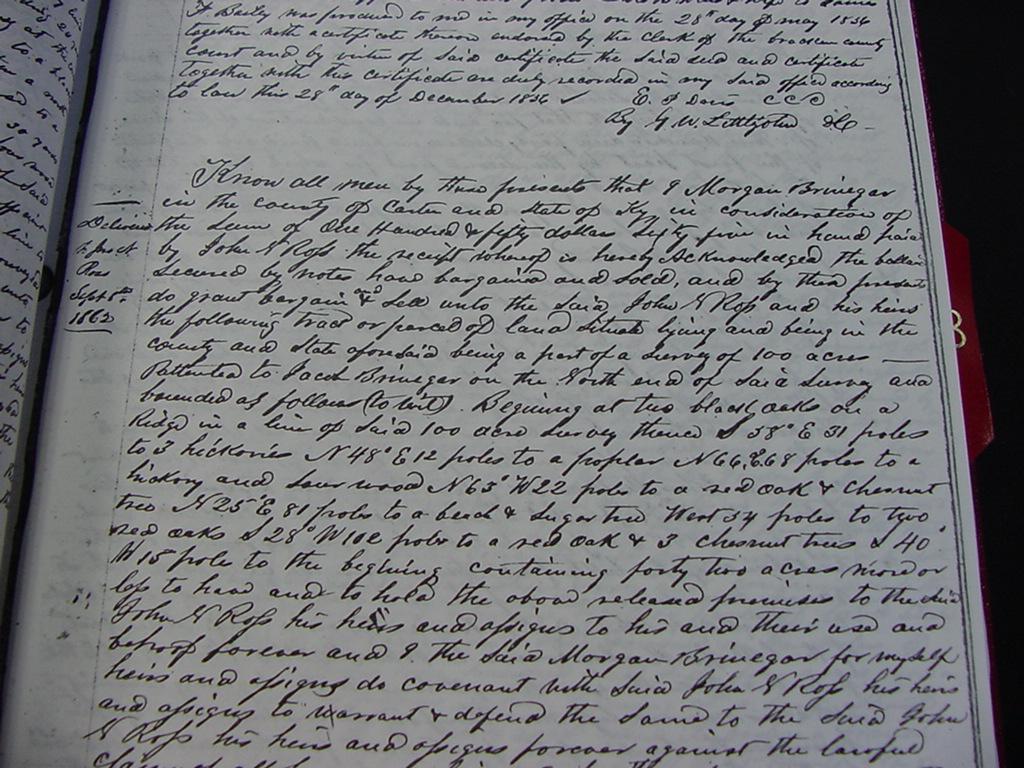 H Bailey was produced to me in my office on the 28th day of may 1856
together with a certificate thereon endorsed by the Clerk of the bracken county
court and by virtue of Said certificate the Said deed and certificate
together with this certificate are duly recorded in my Said office according
to law this 28th day of December 1856
E. P Davis CCC
By G. W. Littlejohn DC
Know all men by these presents that I Morgan Brinegar
in the county of Carter and State of Ky in consideration of
the Sum of One Hundred & fifty dollars Sixty five in hand paid
by John N Ross the receipt whereof is hereby Acknowledged the ballance
Secured by notes have bargained and Sold, and by these presents
do grant bargain and & Sell unto the Said John N Ross and his heirs
the following tract or parcel of land Situate lying and being in the
county and State aforesaid being a part of a Survey of 100 acres
Pattented to Jacob Brinegar on the North end of Said Survey and
bounded as follows (to wit). Begining at two black oaks on a
Ridge in a line of Said 100 acre Survey thence S 58° E 31 poles
to 3 hickories N 48° E 12 poles to a poplar N 66, E 68 poles to a
hickory and Sour wood N 63° W 22 poles to a red oak & Chesnut
tree N 25° E 81 poles to a beech & Sugar tree West 54 poles to two
red oaks S 28° W 102 poles to a red oak & 3 chesnut trees S 40
W 15 poles to the begining containing forty two acres more or
less to have and to hold the above released premises to the Said
John N Ross his heirs and assigns to his and their use and
behoof forever and I. the Said Morgan Brinegar for myself
heirs and assigns do covenant with Said John N Ross his heirs
and assigns to warrant & defend the Same to the Said John
N Ross his heirs and assigns forever against the lawful
Delivered
to Jno N
Ross
Sept 6th
1862
B